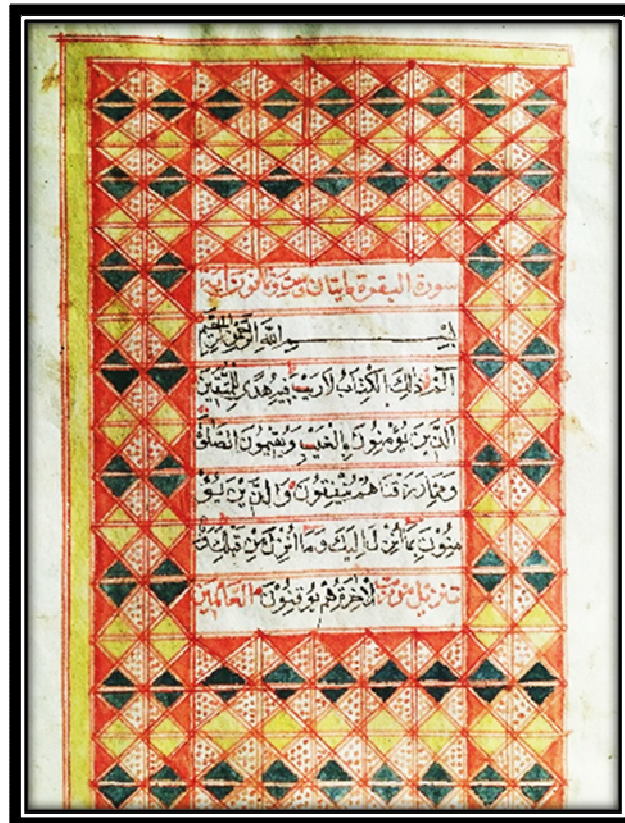 سورة البقرة مايتان و
بِسْمِ اللّٰهِ الرَّحْمٰنِ الرَّحِيمِ
الٓمّ ذٰلِكَ الْكِتَابُ لَا رَيْبَ فِيهِ هُدًى لِلْمُتَّقِينَ
الَّذِينَ يُؤْمِنُونَ بِالْغَيْبِ وَيُقِيمُونَ الصَّلٰوةَ
وَمِمَّا رَزَقْنَاهُمْ يُنْفِقُونَ وَالَّذِينَ يُؤْ
مِنُونَ بِمَا أُنْزِلَ إِلَيْكَ وَمَا أُنْزِلَ مِنْ قَبْلِكَ وَ
تنزيل من بِالْآخِرَةِ هُمْ يُوقِنُونَ العالمين